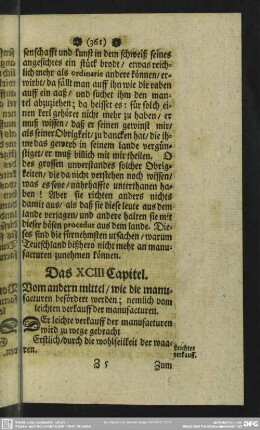 (361)
senschafft und kunst in dem schweiß seines
angesichtes ein stück brodt / etwas reich-
lich mehr als ordinarie andere können / er-
wirbt / da fällt man auff ihn wie die raben
auff ein aaß / und suchet ihm den man-
tel abzuziehen; da heisset es: für solch ei-
nen kerl gehöret nicht mehr zu haben / er
muß wissen / daß er seinen gewinst mir /
als seiner Obrigkeit / zu dancken hat / die ih-
me das gewerb in seinem lande vergün-
stiget / er muß billich mit mir theilen. O
des grossen unverstandes solcher Obrig-
keiten / die da nicht verstehen noch wissen /
was es seye / nahrhaffte unterthanen ha-
ben! Aber sie richten anders nichts
damit aus / als daß sie diese leute aus dem
lande verjagen / und andere halten sie mit
dieser bösen procedur aus dem lande. Die-
ses sind die fürnehmsten ursachen / warum
Teutschland bißhero nicht mehr an manu-
facturen zunehmen können.
Das XCIII Capitel.
Vom andern mittel / wie die manu-
facturen befördert werden; nemlich vom
leichten verkauff der manufacturen.
Er leichte verkauff der manufacturen
wird zu wege gebracht
Erstlich / durch die wohlfeilkeit der waa-
ren.
Leichter
verkauff.
Z 5
Zum